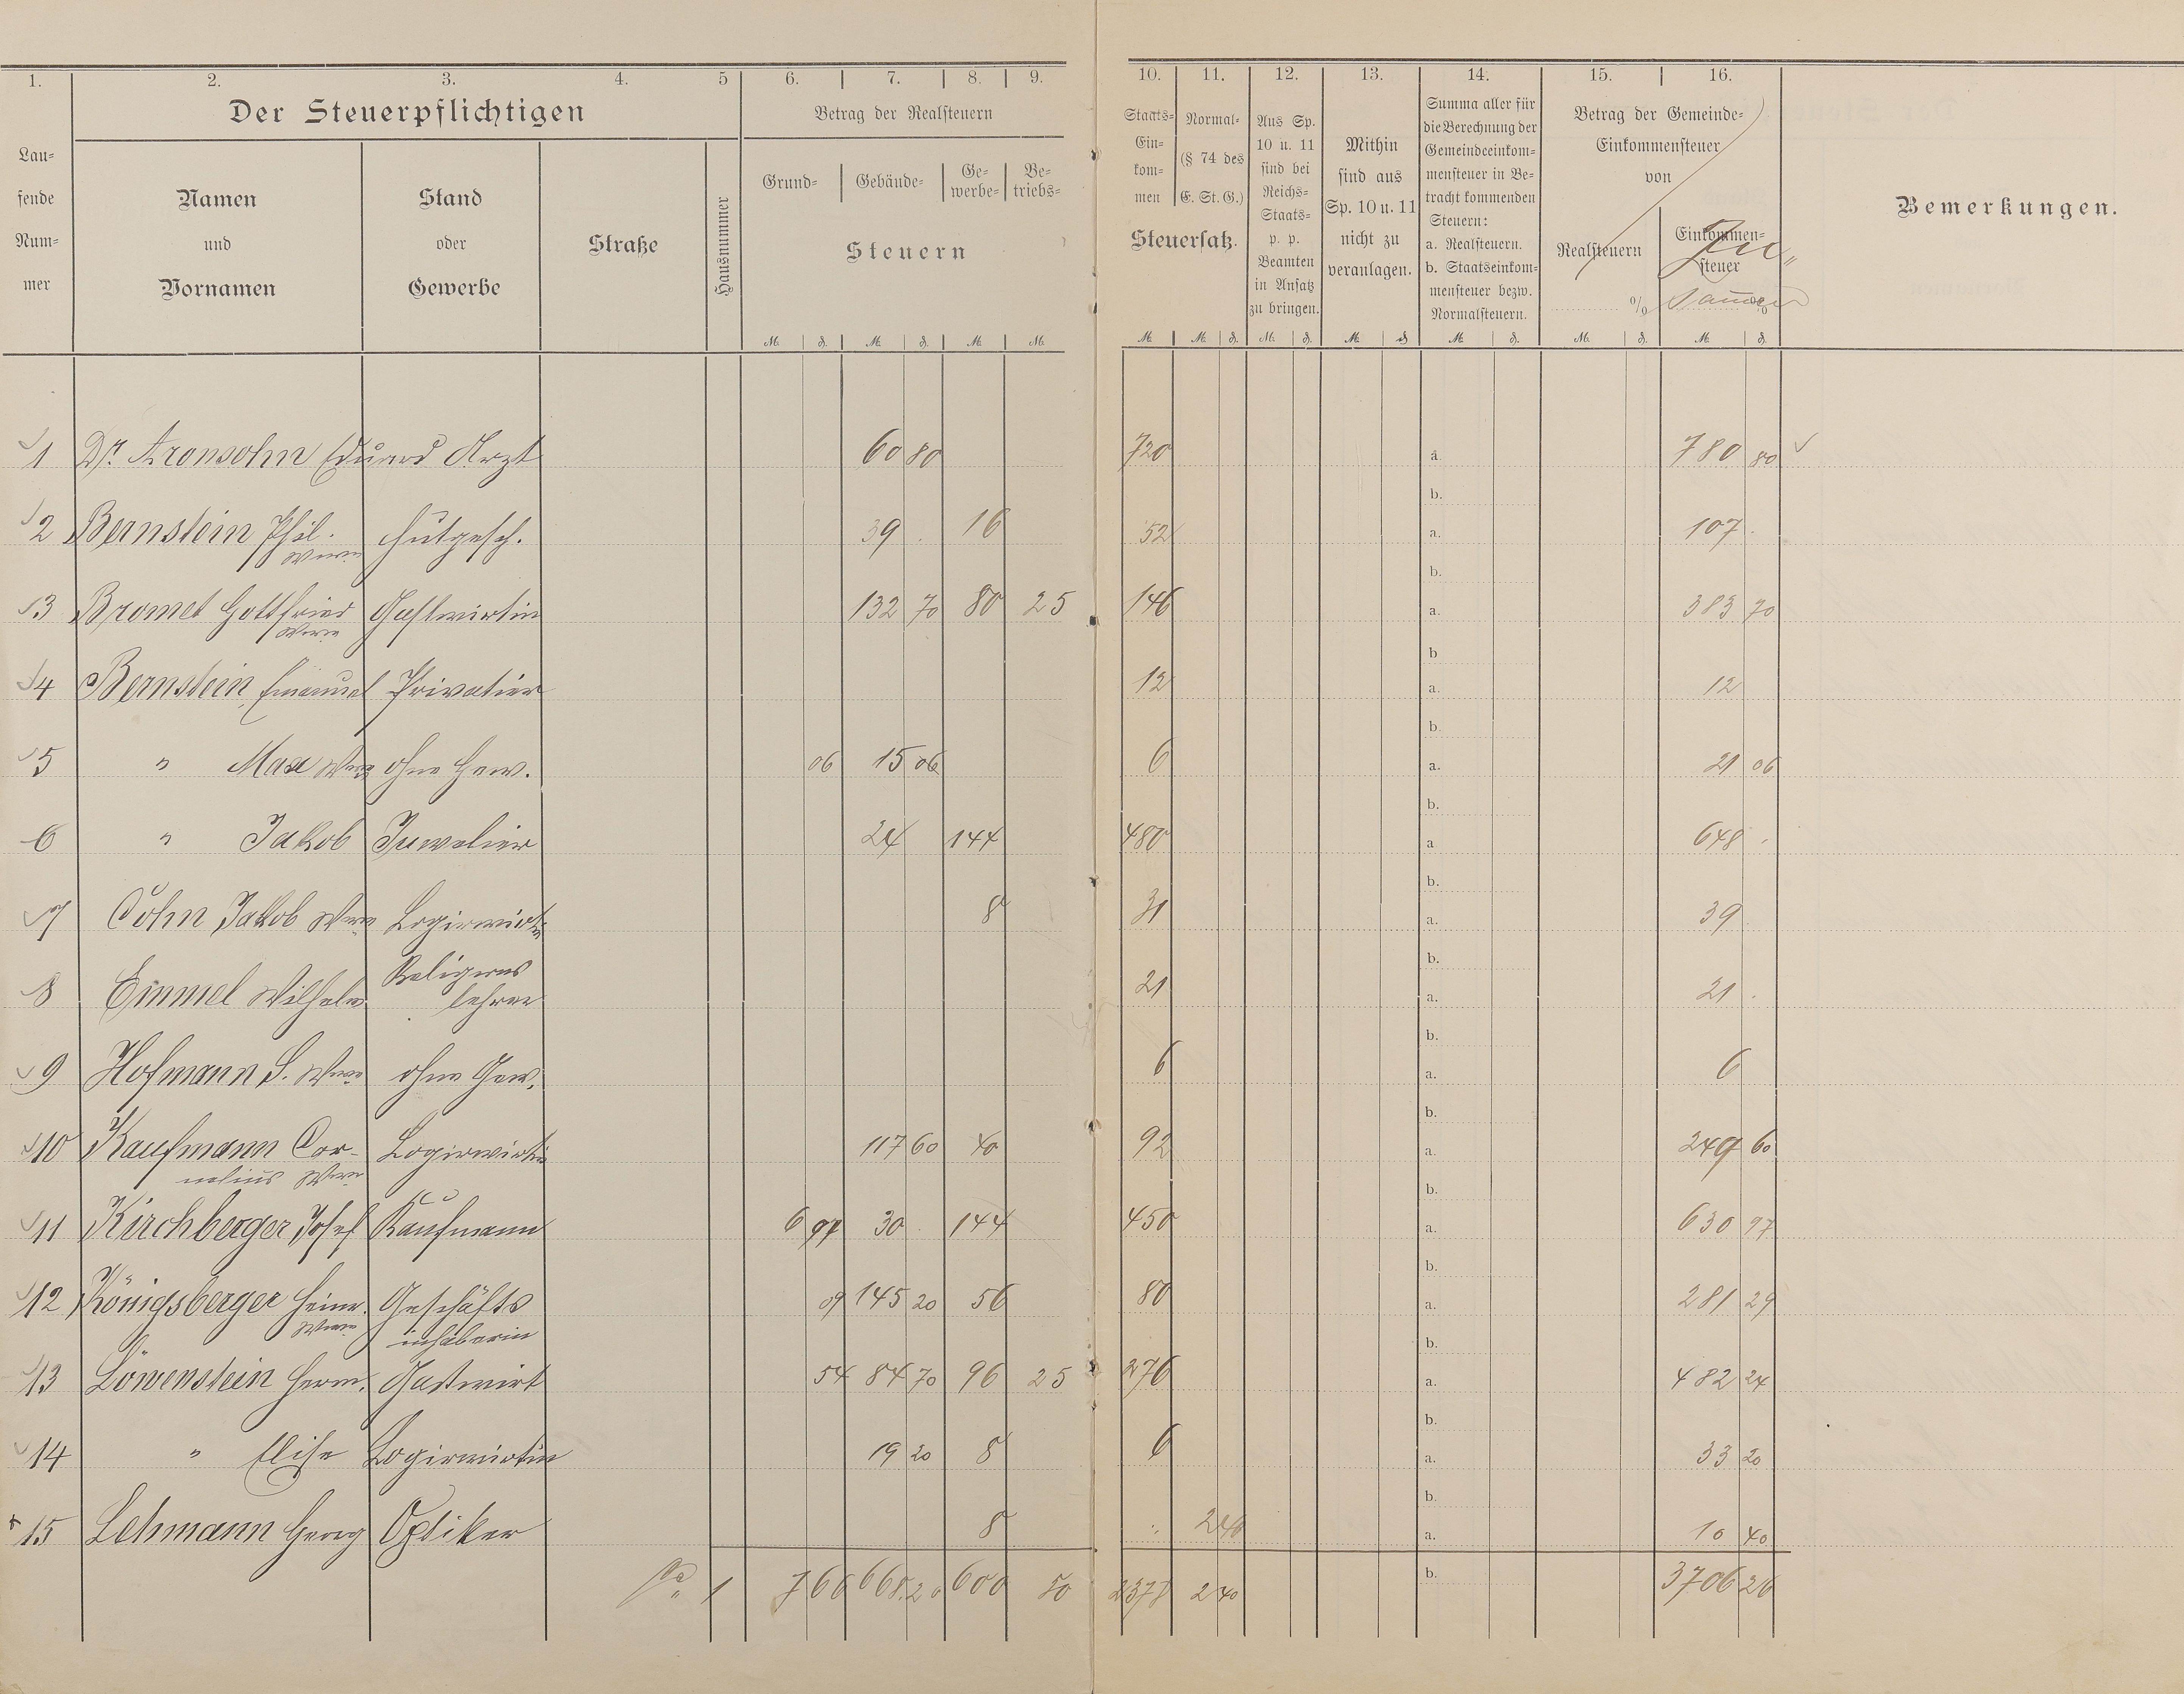 1. 2. 3. 4. 5 6. 7. 8. 9. 10. 11. 12. 13. 14. 15. 16.
Lau-
fende
Num-
mer
Der Steuerpflichtigen
Namen
und
Vornamen
Stand
oder
Gewerbe
Straße
Hausnummer
Betrag der Realsteuern
Grund- Gebäude- Ge-
werbe- Be-
triebs-
Steuern
M. ₰. M. ₰. M. M.
Staats-
Ein-
kom-
men
Normal-
(§ 74 des
E. St. G.)
Steuersatz.
Aus Sp.
10 u. 11
sind bei
Reichs-
Staats-
p. p.
Beamten
in Ansatz
zu bringen.
Mithin
sind aus
Sp. 10 u. 11
nicht zu
veranlagen.
Summa aller für
die Berechnung der
Gemeindeeinkom-
mensteuer in Be-
tracht kommenden
Steuern:
a. Realsteuern.
b. Staatseinkom-
mensteuer bezw.
Normalsteuern.
Betrag der Gemeinde-
Einkommensteuer
von
Realsteuern
%
Einkommen-
steuer
%
Zu-
sammen
Bemerkungen.
M. M. ₰. M. ₰. M. ₰ M. ₰. M. ₰. M. ₰.
1 Dr. Aronsohn Eduard Arzt 60 80 720 a. 780 80
b.
2 Bernstein Phil. Hutgesch. 39 . 16 52 a. 107 .
Wwe.
b.
3 Bromet Gottfried Gastwirtin 132 70 80 25 146 a. 383 70
Wwe
b
4 Bernstein, Emanuel Privatier 12 a. 12
b.
5 " Max Wwe ohne Gew. 06 15 06 6 a. 21 06
b.
6 " Jakob Juwelier 24 144 480 a 648 .
b.
7 Cohn Jakob Wwe Logirwirtin 8 31 a. 39
b.
8 Emmel Wilhelm Religions
lehrer 21 a. 21 .
b.
9 Hofmann S. Wwe. ohne Gew. 6 a. 6
b.
10 Kaufmann Cor- Logirwirtin 117 60 40 92 a. 249 60
nelius Wwe
b.
11 Kirchberger Josef Kaufmann 6 97 30 . 144 450 a. 630 97
b.
12 Königsberger Heinr. Geschäfts 09 145 20 56 80 a. 281 29
Wwe. inhaberin
b.
13 Löwenstein Herm. Gastwirt 54 84 70 96 25 276 a. 482 24
b.
14 " Elise Logirwirtin 19 20 8 6 a. 33 20
b.
15 Lehmann Georg Optiker 8 2 40 a. 10 40
1 7 66 668.20 600 50 2378 2 40 b. 3706 26